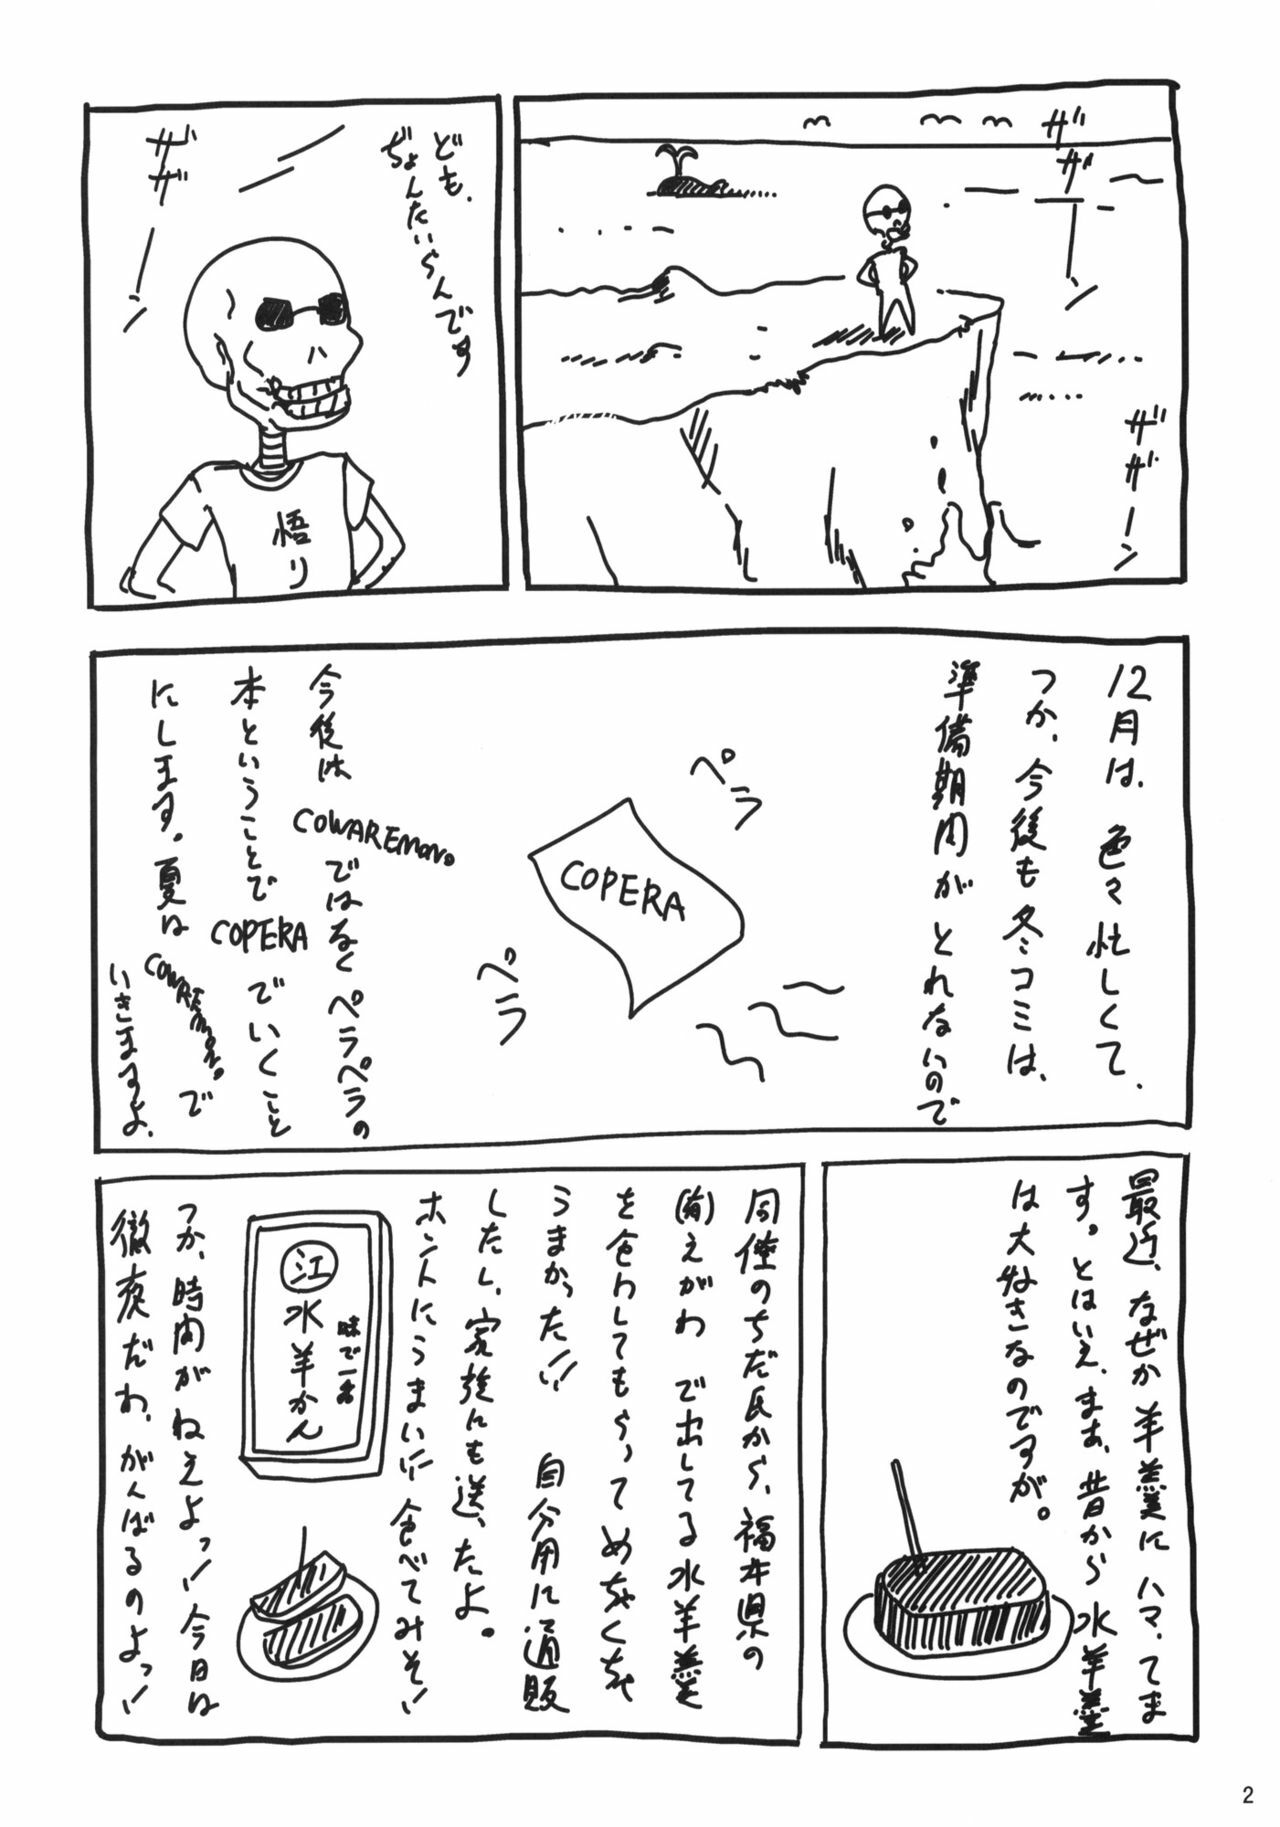 ザザーン
ザザーン
ども、
ぢょんたいらんです
ザザーン
悟り
12月は、色々忙しくて、
つか、今後も冬コミは、
準備期間がとれないので
ペラ
COPERA
ペラ
今後は
COWAREMONO
ではなくペラペラの
本ということで
COPERA
でいくこと
にします。夏は
COWAREMONO
で
いきますよ、
最近、なぜか羊羹にハマってま
す。とはいえ、まあ、昔から水羊羹
は大好きなのですが。
同僚のちだ氏から、福井県の
(有)えがわ で出してる水羊羹
を食わしてもらってめちゃくちゃ
うまかった!!! 自分用に通販
したし、家族にも送ったよ。
ホントにうまい!!! 食べてみそ!!
江
味で一番
水羊かん
つか、時間がねえよっ!! 今日は
徹夜だわ、がんばるのよっ!!
2